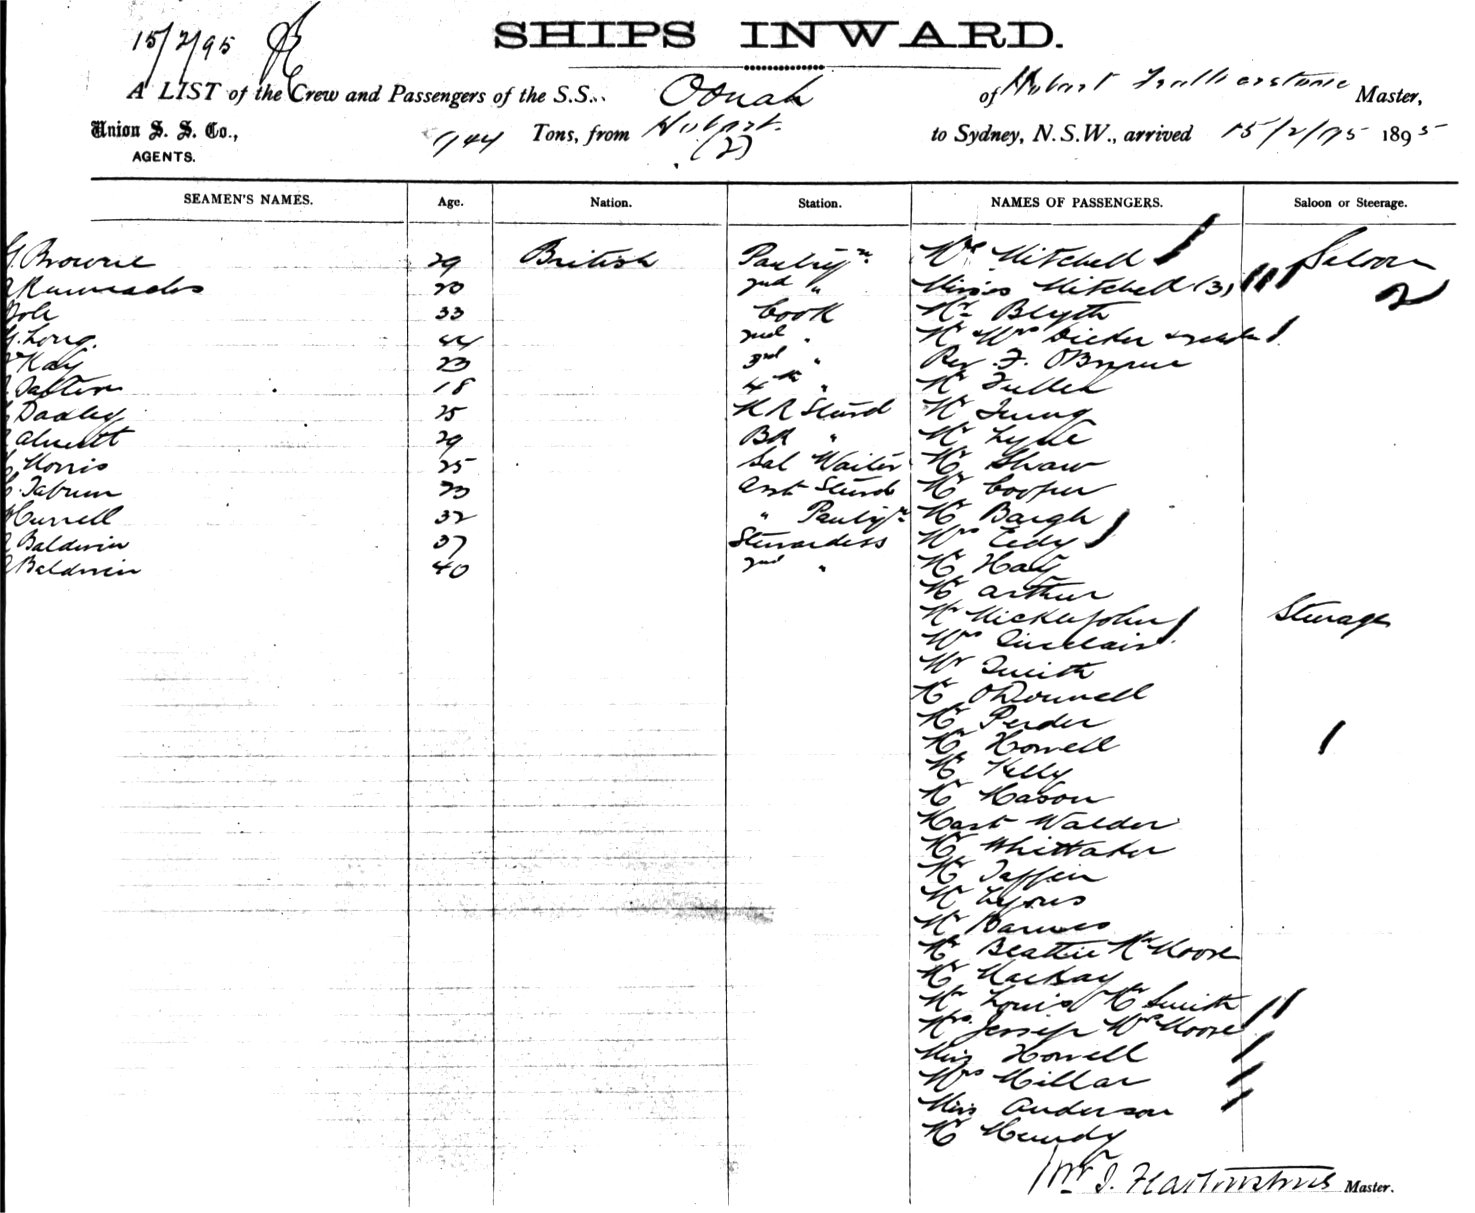 15/2/95
SHIPS INWARD.
A LIST of the Crew and Passengers of the S.S. Oonah of Hobart Master,
Union S. S. Co., 1744 Tons, from Hobart. to Sydney, N.S.W., arrived 15/2/95 1895
AGENTS. (2)
SEAMEN'S NAMES. Age. Nation. Station. NAMES OF PASSENGERS. Saloon or Steerage.
G. Browne 29 British Pantryn Mrs Mitchell Saloon
20 2nd " Misses Mitchell (3) 2
33 Cook Mr Blyth
G. Long. 44 2nd " Mr & Mrs Dicker &
Kay 23 3rd " Rev. F. O'Byrne
18 4th " Mr Fuller
Dadley 25 Mr
29 BR " Mr Lyne
Morris 25 Sal Waiter Mr Shaw
C. Tabrum 23 Asst Stewd Mr Cooper
Hurrell 32 " Pantryn Mr Bargh
Baldwin 37 Stewardess Mrs Eedy
Baldwin 40 2nd " Mr Hay
Mr Arthur
Mr Micklejohn Steerage
Mrs Sinclair
Mr Smith
Mr O'Donnell
Mr Perder
Mr Howell
Mr Kelly
Mr Mason
Mast Walder
Mr Whittaker
Mr Taffin
Mr Lyons
Mr Barnes
Mr Beattie Mr Moore
Mr MacKay
Mr Louis Mr Smith
Mrs Jessep Mrs Moore
Miss Howell
Mrs Millar
Miss Anderson
Mr Hendy
Master.